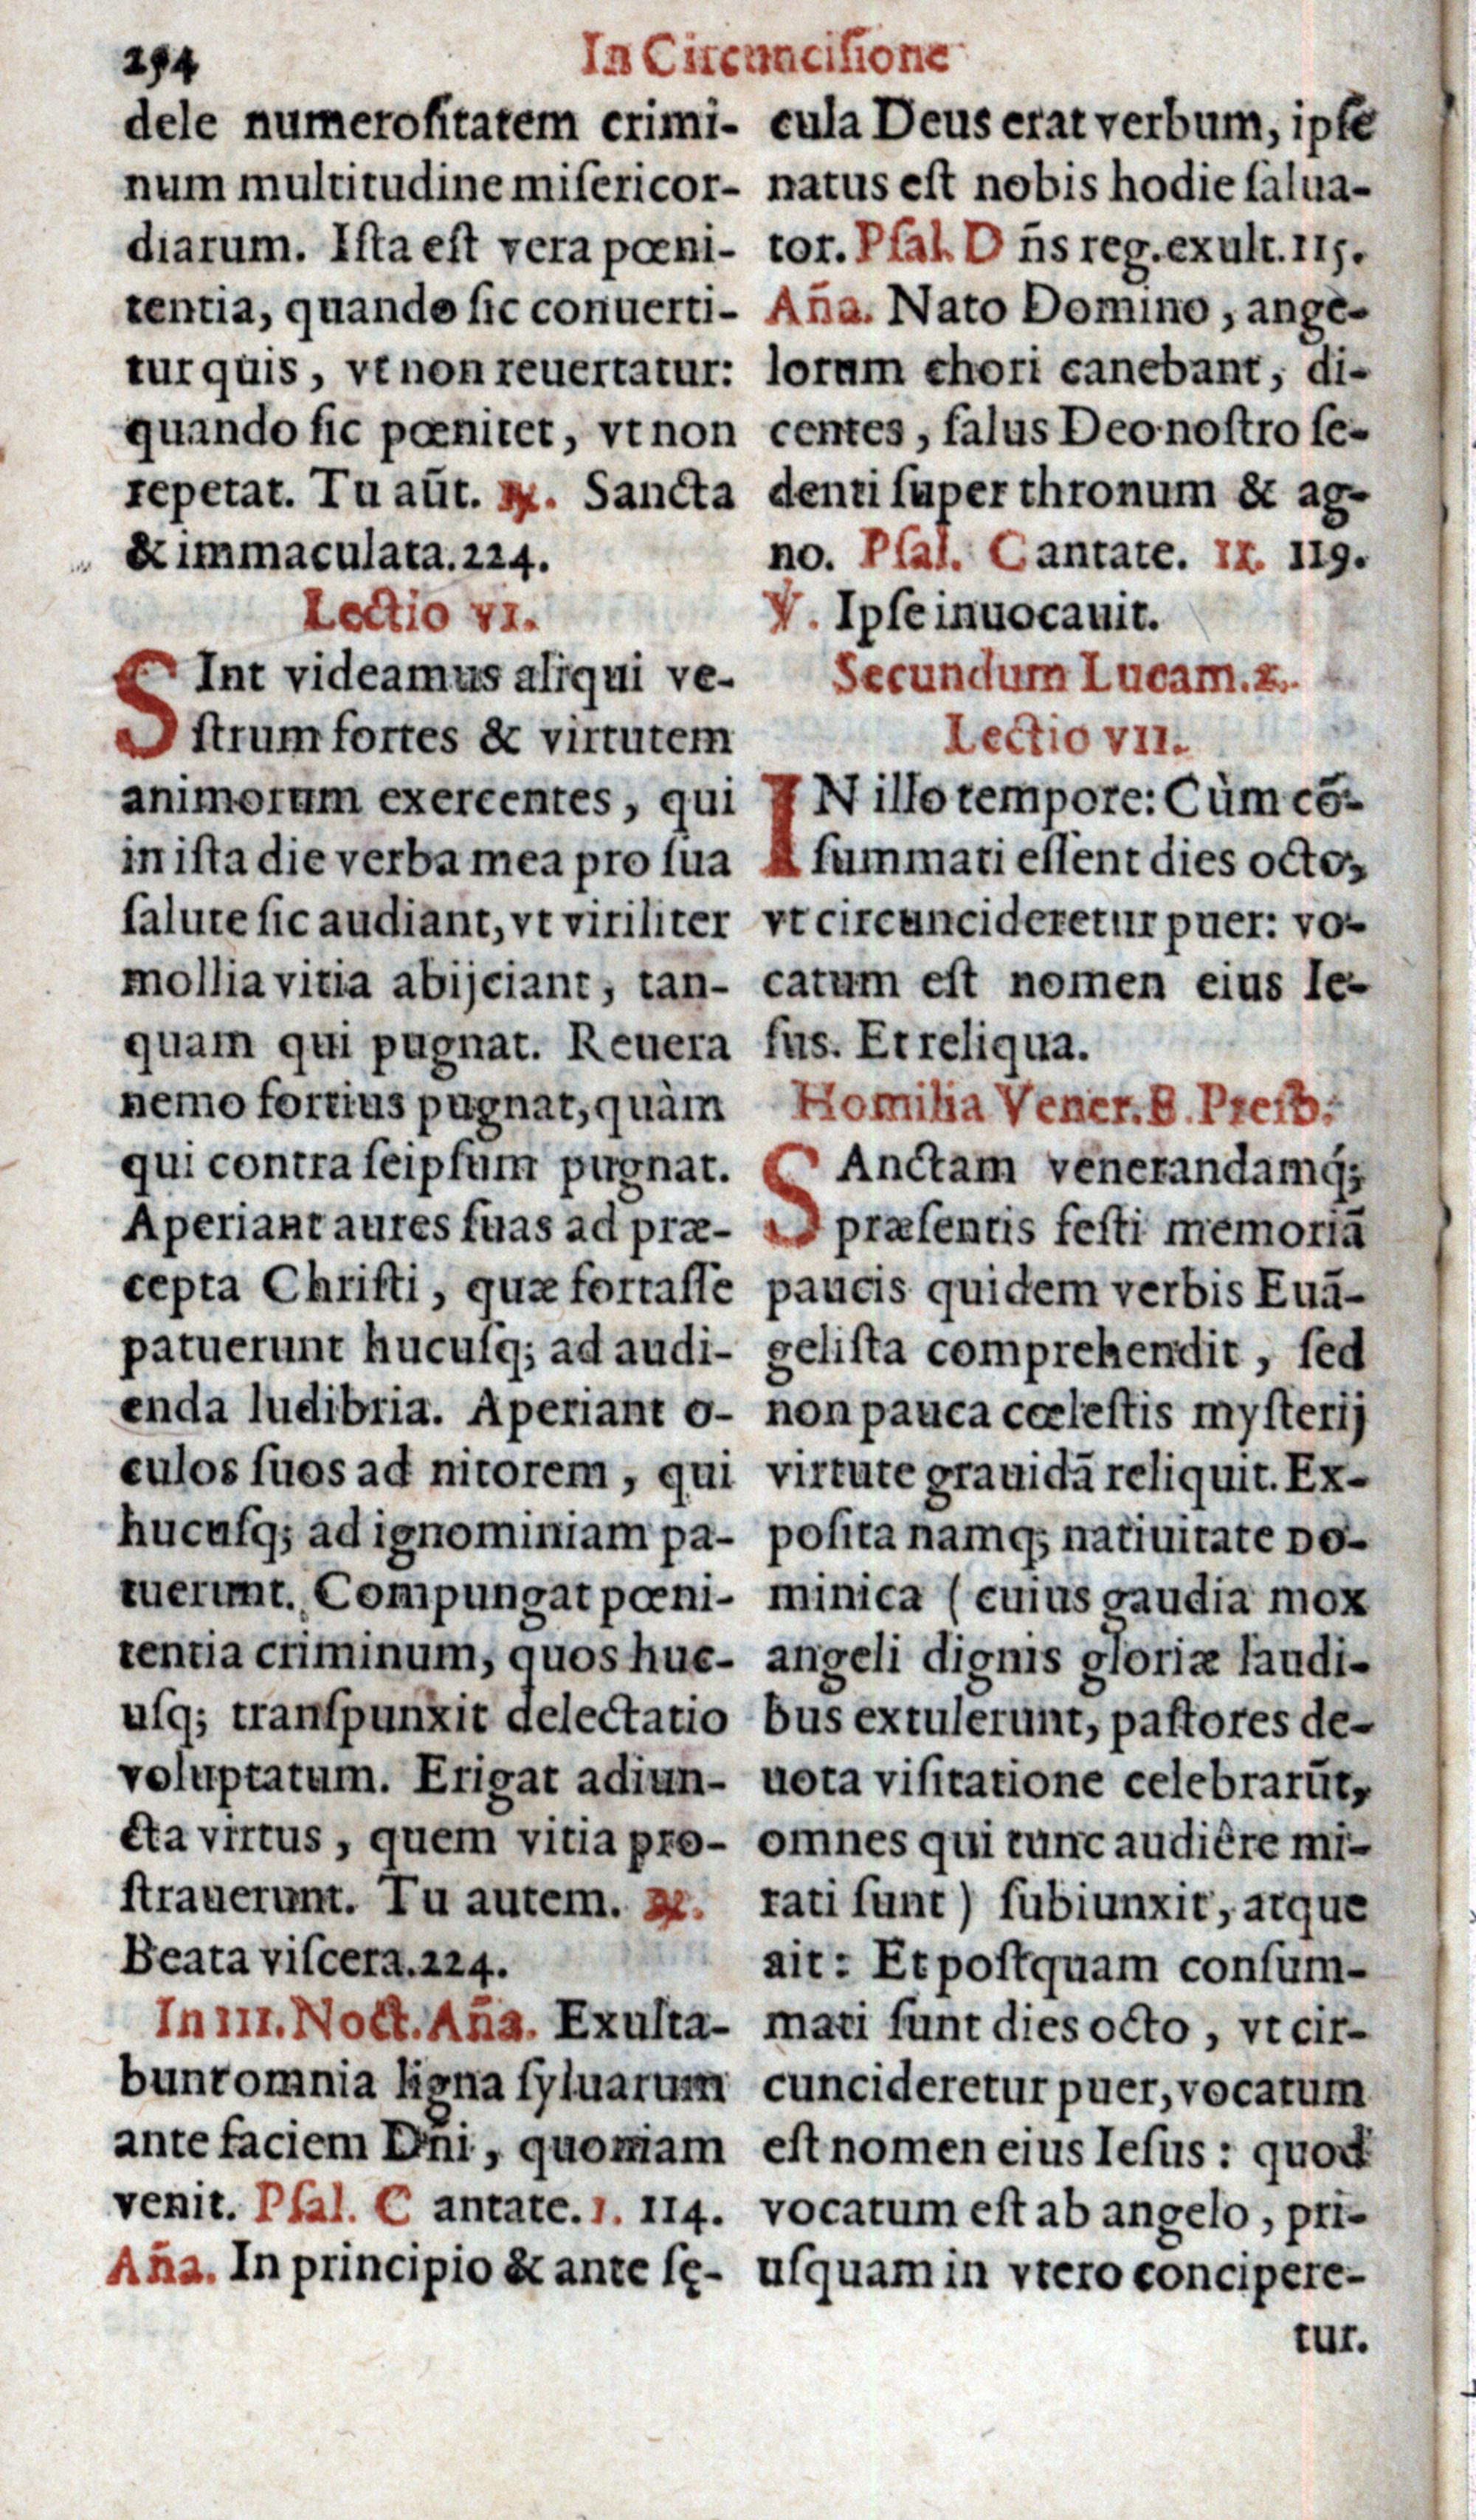 294
In Circunciſione
dele numeroſitatem crimi-
num multitudine miſericor-
diarum. Iſta eſt vera pœni-
tentia, quando ſic conuerti-
tur quis, vt non reuertatur:
quando ſic pœnitet, vt non
repetat. Tu aũt. ℟. Sancta
& immaculata. 224.
Lectio VI.
SInt videamus aliqui ve-
ſtrum fortes & virtutem
animorum exercentes, qui
in iſta die verba mea pro ſua
ſalute ſic audiant, vt viriliter
mollia vitia abijciant, tan-
quam qui pugnat. Reuera
nemo fortius pugnat, quàm
qui contra ſeipſum pugnat.
Aperiant aures ſuas ad præ-
cepta Chriſti, quæ fortaſſe
patuerunt hucuſq; ad audi-
enda ludibria. Aperiant o-
culos ſuos ad nitorem, qui
hucuſq; ad ignominiam pa-
tuerunt. Compungat pœni-
tentia criminum, quos huc-
uſq; tranſpunxit delectatio
voluptatum. Erigat adiun-
cta virtus, quem vitia pro-
ſtrauerunt. Tu autem. ℟.
Beata viſcera. 224.
In III. Noct. Aña. Exulta-
bunt omnia ligna ſyluarum
ante faciem Dñi, quoniam
venit. Pſal. Cantate. 1. 114.
Aña. In principio & ante ſę-
cula Deus erat verbum, ipſe
natus eſt nobis hodie ſalua-
tor. Pſal. Dñs reg. exult. 115.
Aña. Nato Domino, ange-
lorum chori canebant, di-
centes, ſalus Deo noſtro ſe-
denti ſuper thronum & ag-
no. Pſal. Cantate. II. 119.
℣. Ipſe inuocauit.
Secundum Lucam. 2.
Lectio VII.
IN illo tempore: Cùm cõ-
ſummati eſſent dies octo,
vt circuncideretur puer: vo-
catum eſt nomen eius Ie-
ſus. Et reliqua.
Homilia Vener. B. Preſb.
SAnctam venerandamq́;
præſentis feſti memoriã
paucis quidem verbis Euã-
geliſta comprehendit, ſed
non pauca cœleſtis myſterij
virtute grauidã reliquit. Ex-
poſita namq; natiuitate DO-
minica (cuius gaudia mox
angeli dignis gloriæ laudi-
bus extulerunt, paſtores de-
uota viſitatione celebrarũt,
omnes qui tunc audiêre mi-
rati ſunt) ſubiunxit, atque
ait: Et poſtquam conſum-
mati ſunt dies octo, vt cir-
cuncideretur puer, vocatum
eſt nomen eius Ieſus: quod
vocatum eſt ab angelo, pri-
uſquam in vtero concipere-
tur.